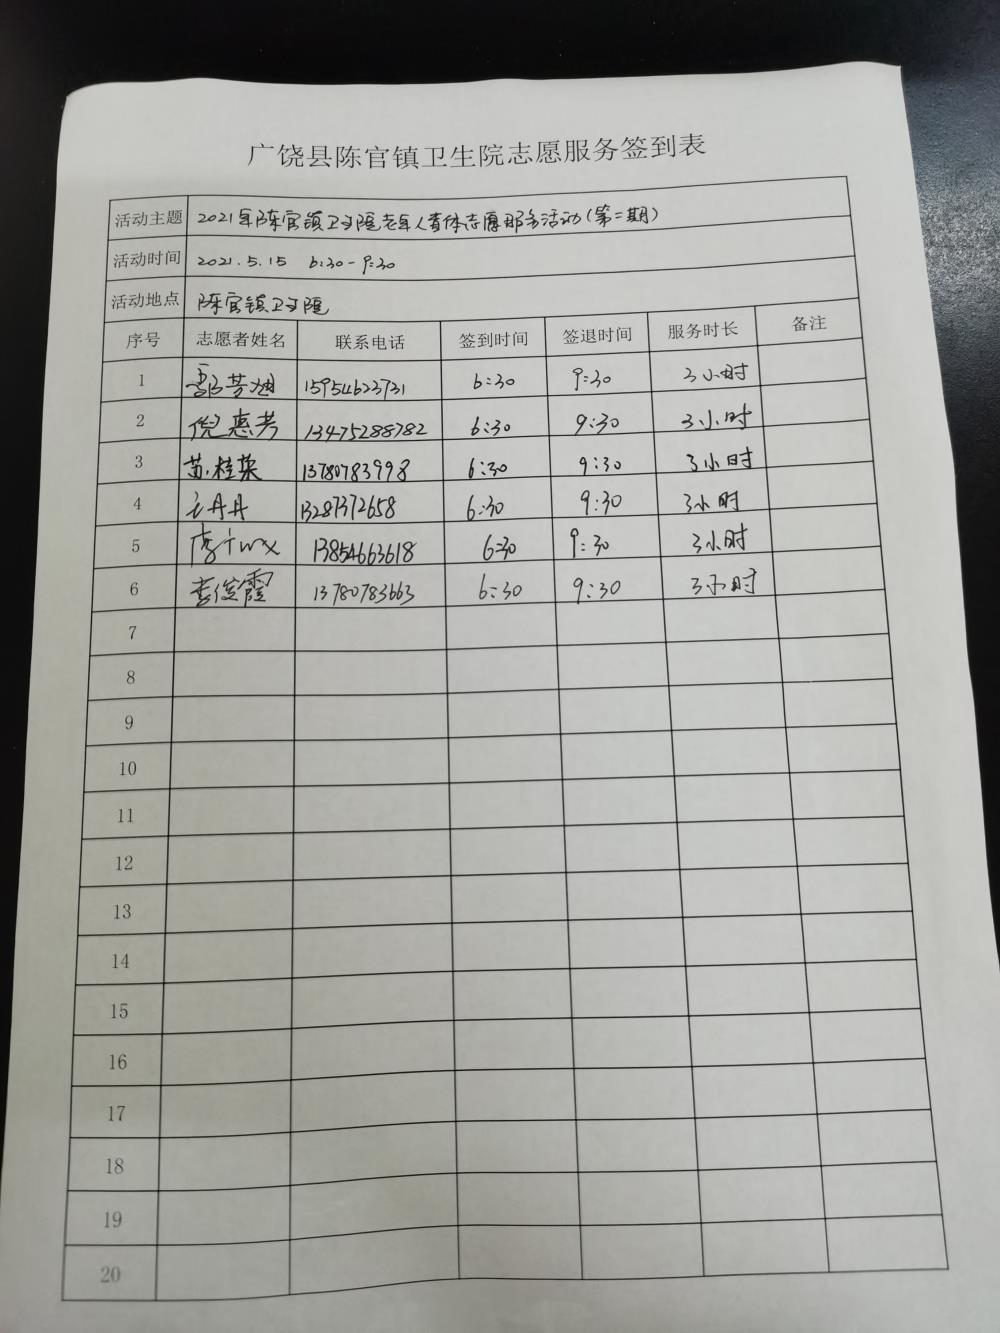 广饶县陈官镇卫生院志愿服务签到表
活动主题 2021年陈官镇卫生院老年人查体志愿服务活动(第二期)
活动时间 2021.5.15 6:30-9:30
活动地点 陈官镇卫生院
序号 志愿者姓名 联系电话 签到时间 签退时间 服务时长 备注
1 15954623731 6:30 9:30 3小时
2 倪惠芳 13475288782 6:30 9:30 3小时
3 苏桂英 13780783998 6:30 9:30 3小时
4 丹丹 13287372658 6:30 9:30 3小时
5 13854663618 6:30 9:30 3小时
6 李俊霞 13780783663 6:30 9:30 3小时
7
8
9
10
11
12
13
14
15
16
17
18
19
20